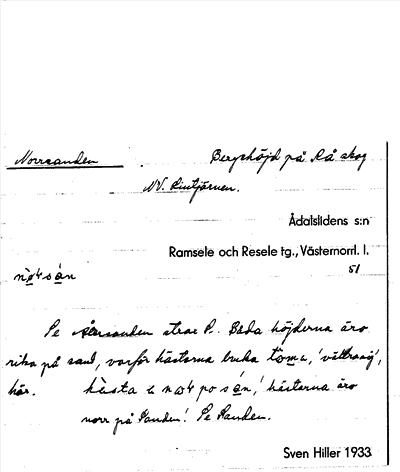 Norrsanden Bergshöjd på Rå skog
NV. Rintjärnen.
Ådalslidens s:n
Ramsele och Resele tg., Västernorrl. l.
51
Se strax P. Båda höjderna äro
rika på sand, varför hästarna bruka
här. hästa hästarna äro
norr på Sanden! Se Sanden.
Sven Hiller 1933